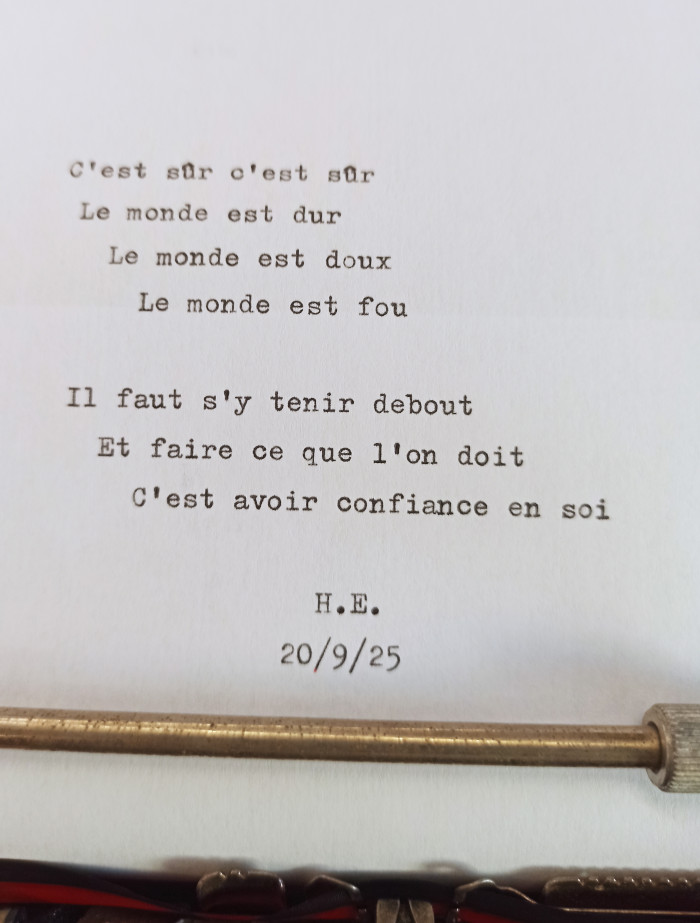 C'est sûr c'est sûr
Le monde est dur
Le monde est doux
Le monde est fou
Il faut s'y tenir debout
Et faire ce que l'on doit
C'est avoir confiance en soi
H.E.
20/9/25